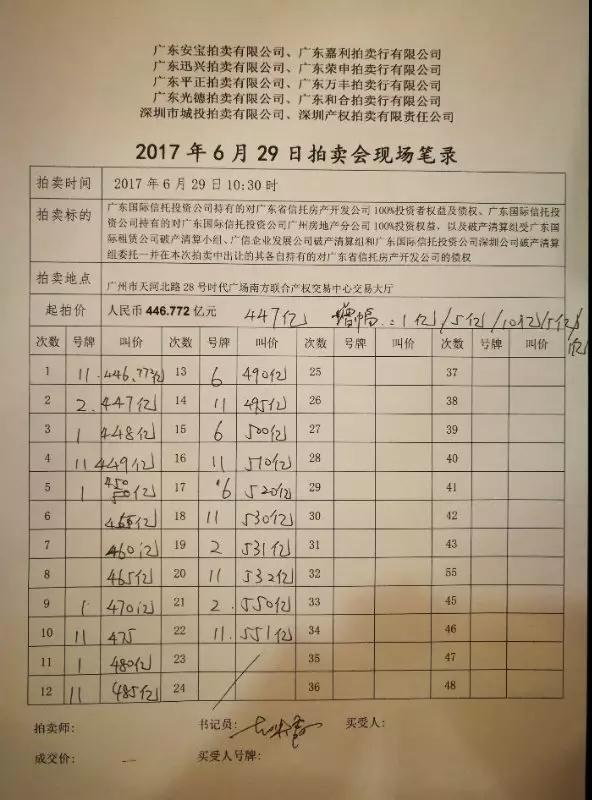 广东安宝拍卖有限公司、广东嘉利拍卖行有限公司
广东迅兴拍卖有限公司、广东荣申拍卖行有限公司
广东平正拍卖有限公司、广东万丰拍卖行有限公司
广东光德拍卖有限公司、广东和合拍卖行有限公司
深圳市城投拍卖有限公司、深圳产权拍卖有限责任公司
2017 年 6 月 29 日拍卖会现场笔录
拍卖时间 2017 年 6 月 29 日 10:30 时
拍卖标的 广东国际信托投资公司持有的对广东省信托房产开发公司 100%投资者权益及债权、广东国际信托投
资公司持有的对广东国际信托投资公司广州房地产分公司 100%投资权益，以及破产清算组受广东国
际租赁公司破产清算小组、广信企业发展公司破产清算组和广东国际信托投资公司深圳公司破产清算
组委托一并在本次拍卖中出让的其各自持有的对广东省信托房产开发公司的债权
拍卖地点 广州市天河北路 28 号时代广场南方联合产权交易中心交易大厅
起拍价 人民币 446.772 亿元 447亿 增幅:1亿/5亿/10亿/5亿/
亿
次数 号牌 叫价 次数 号牌 叫价 次数 号牌 叫价 次数 号牌 叫价
1 11 446.772亿 13 6 490亿 25 37
2 2 447亿 14 11 495亿 26 38
3 1 448亿 15 6 500亿 27 39
4 11 449亿 16 11 510亿 28 40
5 1 450亿 17 6 520亿 29 41
6 亿 18 11 530亿 30 42
7 460亿 19 2 531亿 31 43
8 465亿 20 11 532亿 32 55
9 1 470亿 21 2 550亿 33 45
10 11 475 22 11 551亿 34 46
11 1 480亿 23 35 47
12 11 485亿 24 36 48
拍卖师: 书记员: 买受人:
成交价: — 买受人号牌: